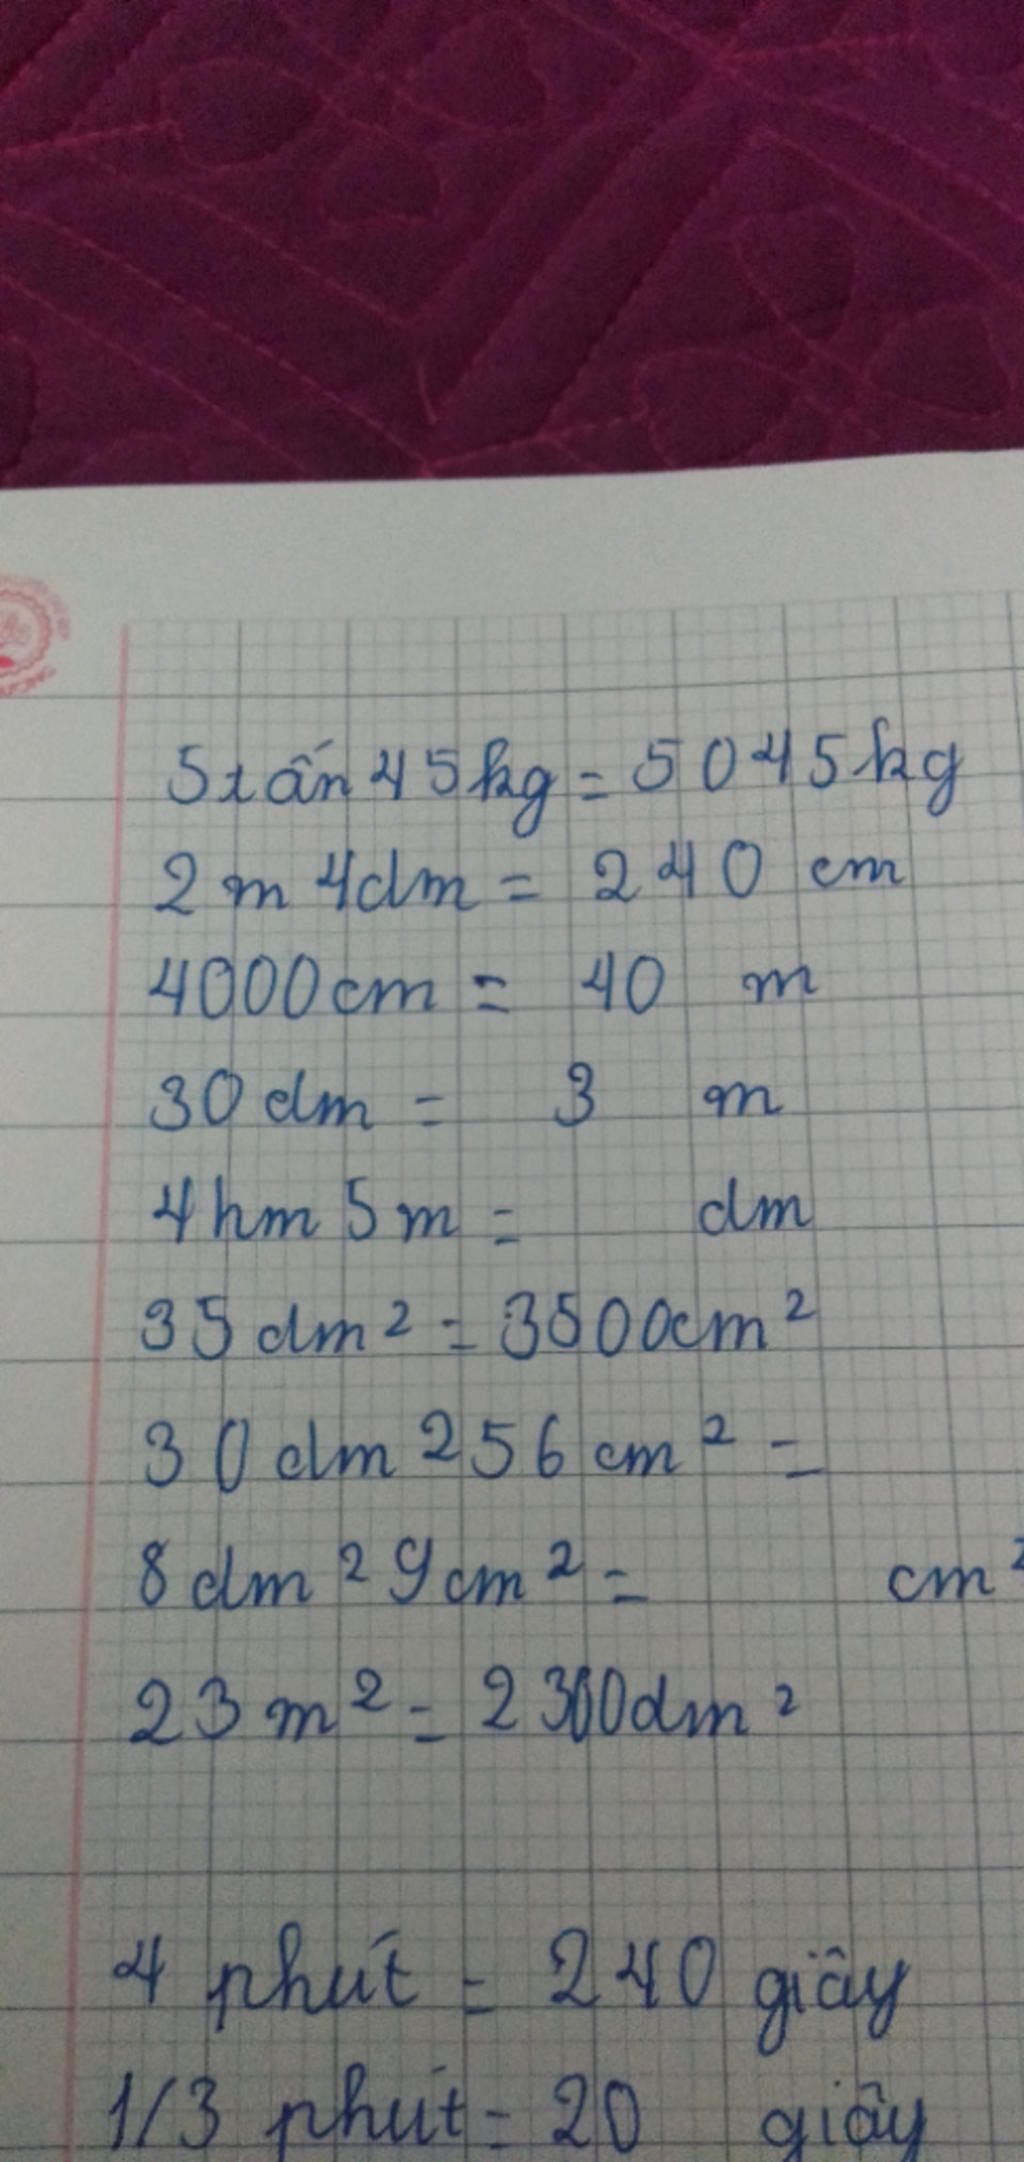 5 tấn 45 kg = 5045 kg
2 m 4 dm = 240 cm
4000 cm = 40 m
30 dm = 3 m
4 hm 5 m = dm
35 dm² = 3500 cm²
30 dm 256 cm² =
8 dm² 9 cm² = cm²
23 m² = 2300 dm²
4 phút = 240 giây
1/3 phút = 20 giây